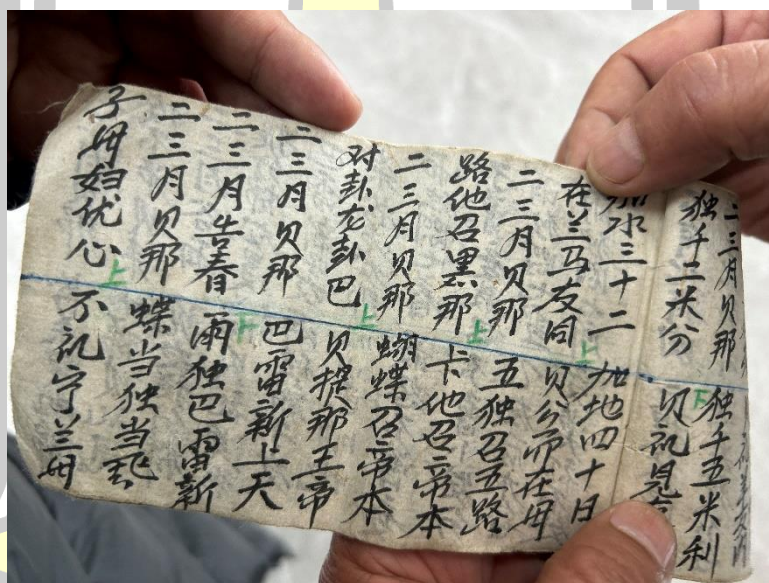 二三月贝那 独千五米利
独千二米分 贝讯見
水三十二 加地四十日
在兰马友同 贝分而在毋
二三月贝那 五独召五路
路他召黑那 卡他召帝本
二三月贝那 蝴蝶召帝本
对卦龙卦巴 贝那王帝
二三月贝那 巴雷新上天
二三月告春 雨独巴雷新
二三月贝那 蝶当独当飛
子毋妇优心 不讯宁兰毋